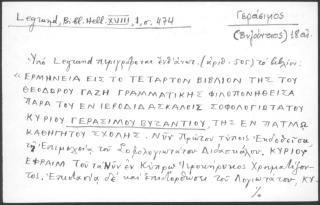 Legrand, Bibl. Hell. XVIII, 1, σ. 474
Γεράσιμος
(Βυζάντιος) 18 αἰ.
Ὑπὸ Legrand περιγράφεται (ἀριθ. 505) τὸ βιβλίον:
« ΕΡΜΗΝΕΙΑ ΕΙΣ ΤΟ ΤΕΤΑΡΤΟΝ ΒΙΒΛΙΟΝ ΤΗΣ ΤΟΥ
ΘΕΟΔΩΡΟΥ ΓΑΖΗ ΓΡΑΜΜΑΤΙΚΗΣ ΦΙΛΟΠΟΝΗΘΕΙΣΑ
ΠΑΡΑ ΤΟΥ ΕΝ ΙΕΡΟΔΙΔΑΣΚΑΛΟΙΣ ΣΟΦΟΛΟΓΙΩΤΑΤΟΥ
ΚΥΡΙΟΥ ΓΕΡΑΣΙΜΟΥ ΒΥΖΑΝΤΙΟΥ, ΤΗΣ ΕΝ ΠΑΤΜΩ
ΚΑΘΗΓΗΤΟΥ ΣΧΟΛΗΣ. Νῦν Πρῶτον τύποις Ἐκδοθεῖσα,
τῇ Ἐπιμονῇ τοῦ Σοφολογιωτάτου Διδασκάλου, ΚΥΡΙΟΥ
ΕΦΡΑΙΜ Τοῦ τὰ Νῦν ἐν Κύπρῳ Ἱεροκήρυκος Χρηματίζον-
τος, Ἐπιστασίᾳ δὲ καὶ Ἐπιδιορθώσει τοῦ Λογιωτάτου, ΚΥ-
%